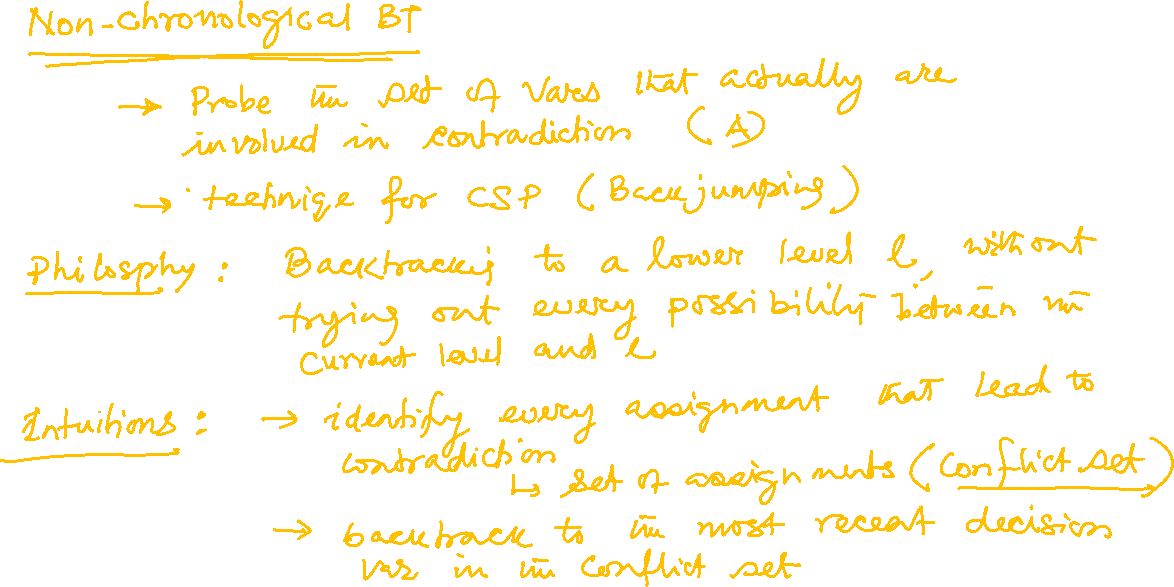 Non-Chronological BT
→ Probe the set of vars that actually are
involved in contradiction (A)
→ techniqe for CSP (Backjumping)
Philosphy : Backtracking to a lower level l, without
trying out every possibility between the
current level and l
Intuitions : → identify every assignment that lead to
contradiction
↳ set of assignments (conflict set)
→ backtrack to the most recent decision
var in the conflict set